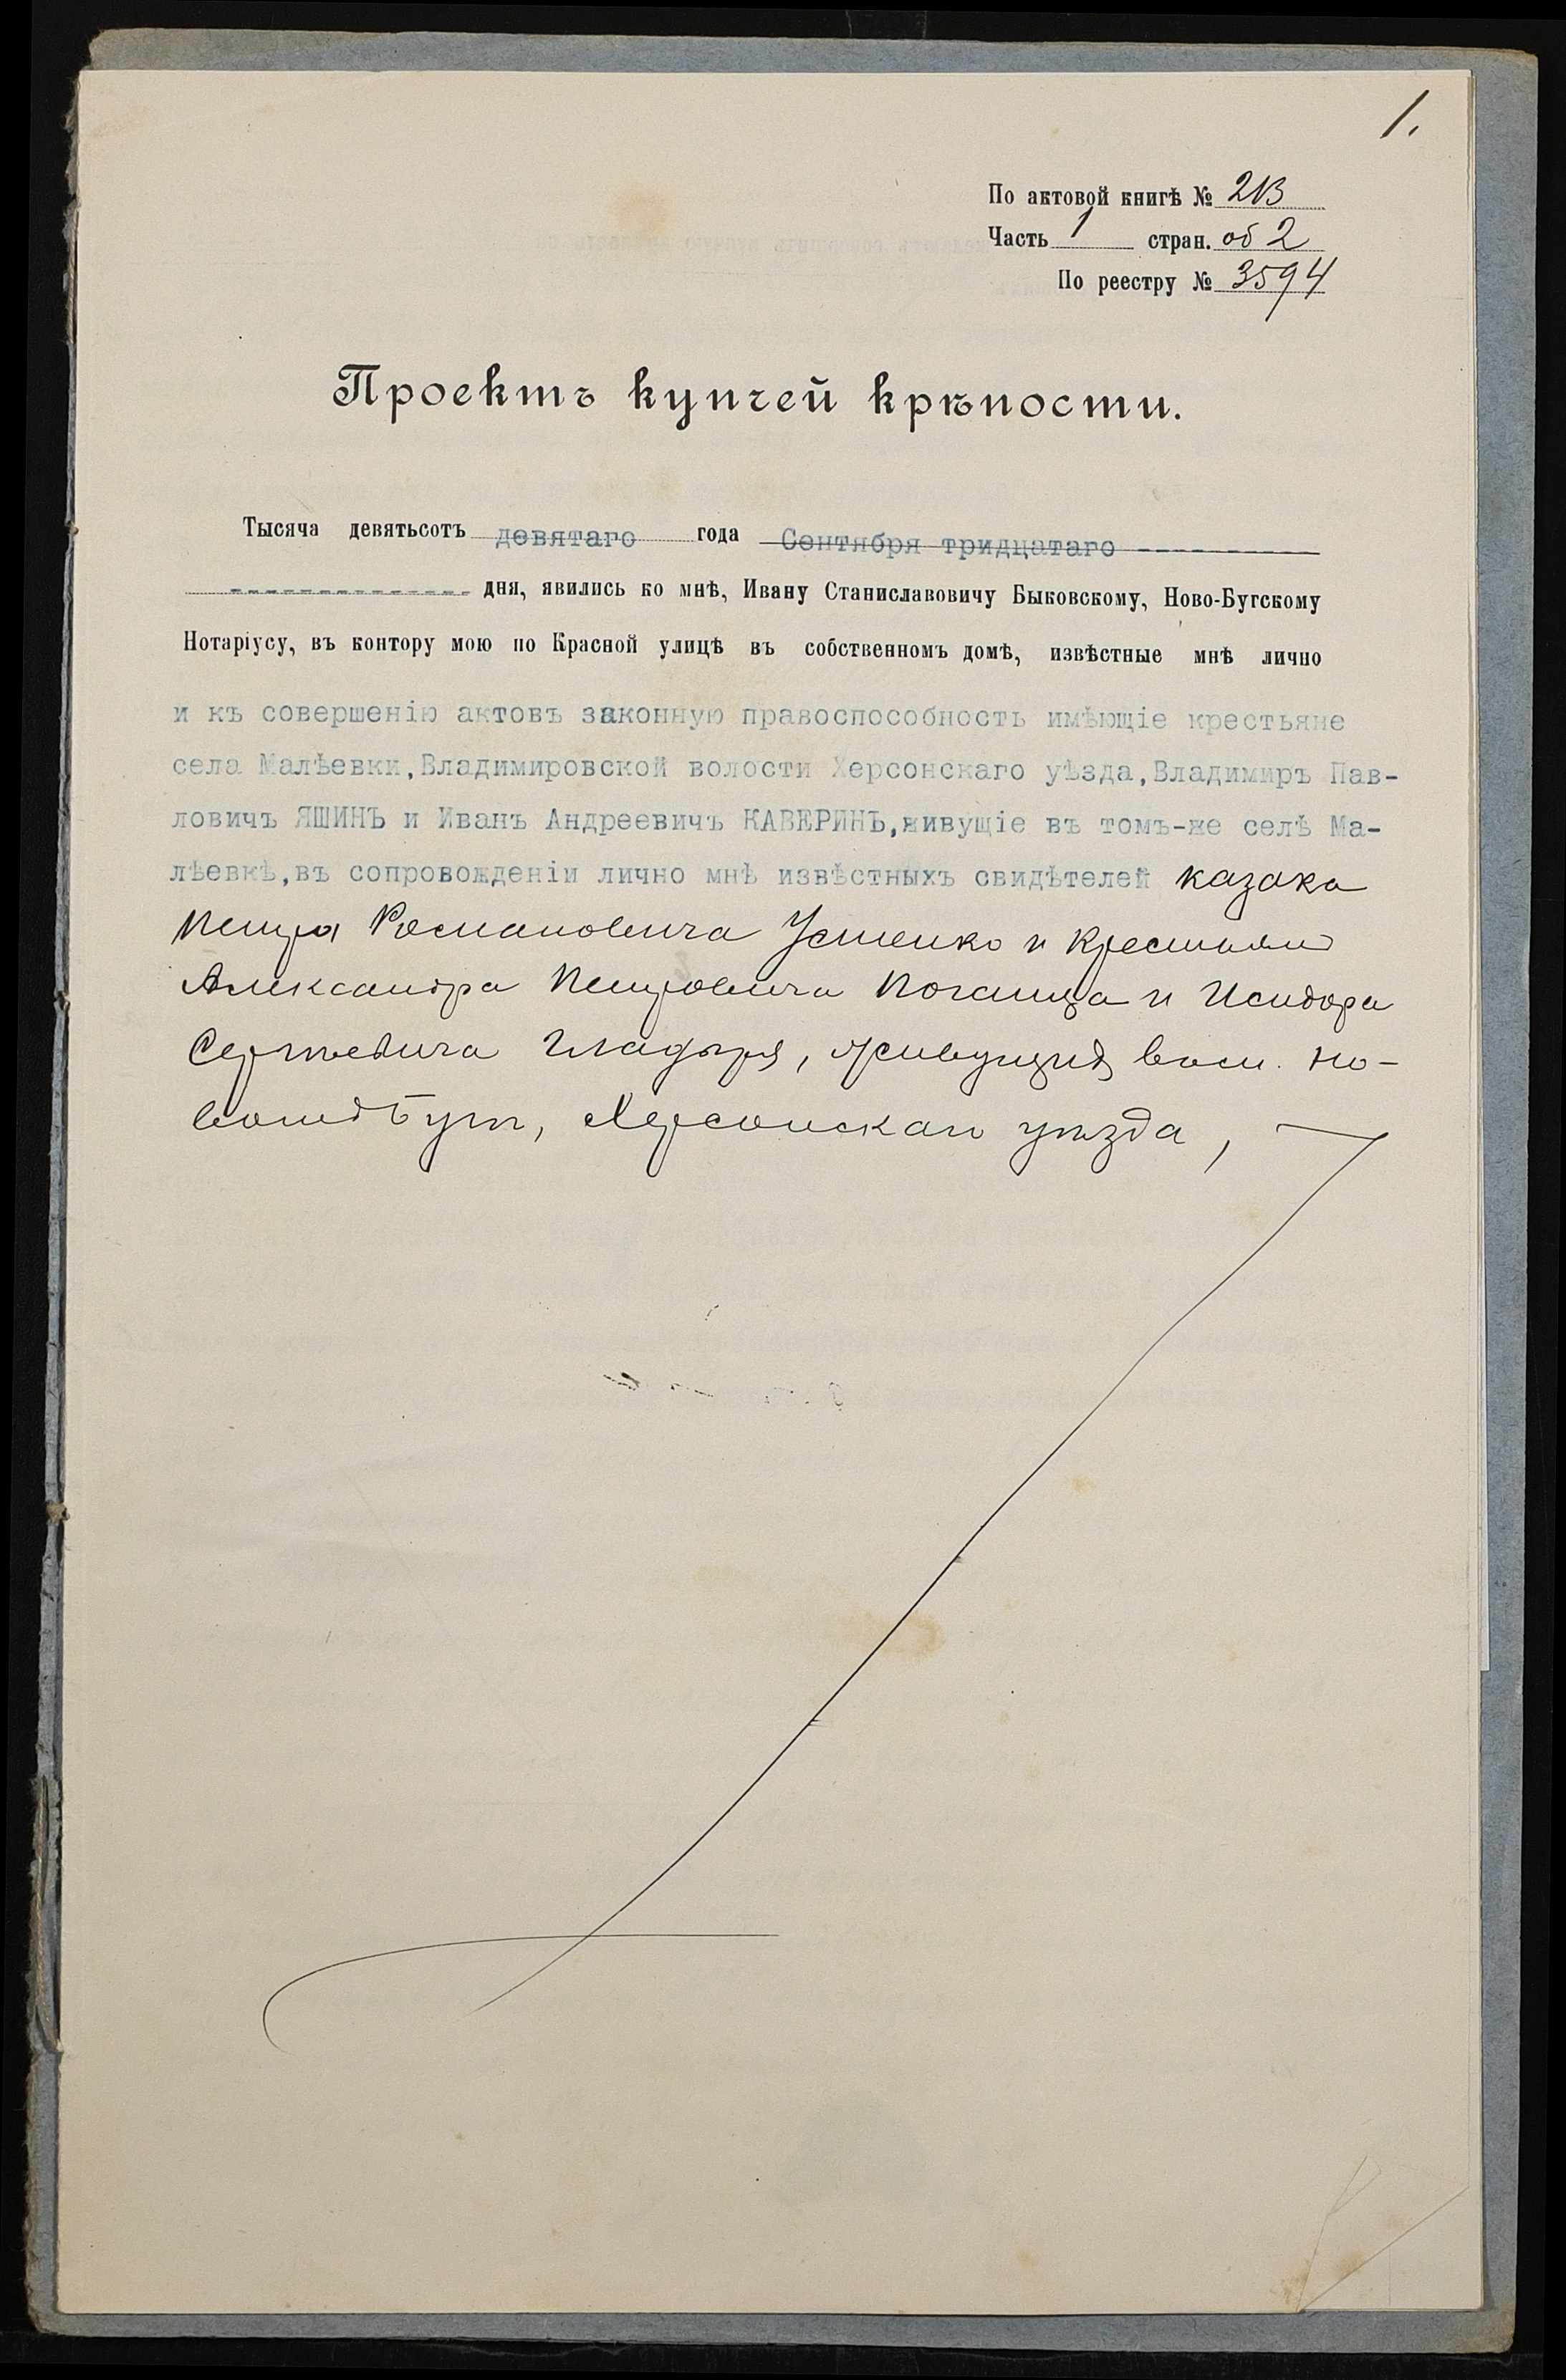 1.
По актовой книгѣ № 213
Часть 1 стран. об 2
По реестру № 3594
Проектъ купчей крѣпости.
Тысяча девятьсотъ девятаго года Сентября тридцатаго ----------
-------------- дня, явились ко мнѣ, Ивану Станиславовичу Быковскому, Ново-Бугскому
Нотаріусу, въ контору мою по Красной улицѣ въ собственномъ домѣ, извѣстные мнѣ лично
и къ совершенію актовъ законную правоспособность имѣющіе крестьяне
села Малѣевки,Владимировской волости Херсонскаго уѣзда,Владимиръ Пав-
ловичъ ЯШИНЪ и Иванъ Андреевичъ КАВЕРИНЪ,живущіе въ томъ-же селѣ Ма-
лѣевкѣ,въ сопровожденіи лично мнѣ извѣстныхъ свидѣтелей казака
Петра Романовича Устенко и крестьянъ
Александра Петровича и Исидора
Сергѣевича Гладыря, живущихъ въ м. Но-
вомъ Бугѣ, Херсонскаго уѣзда,